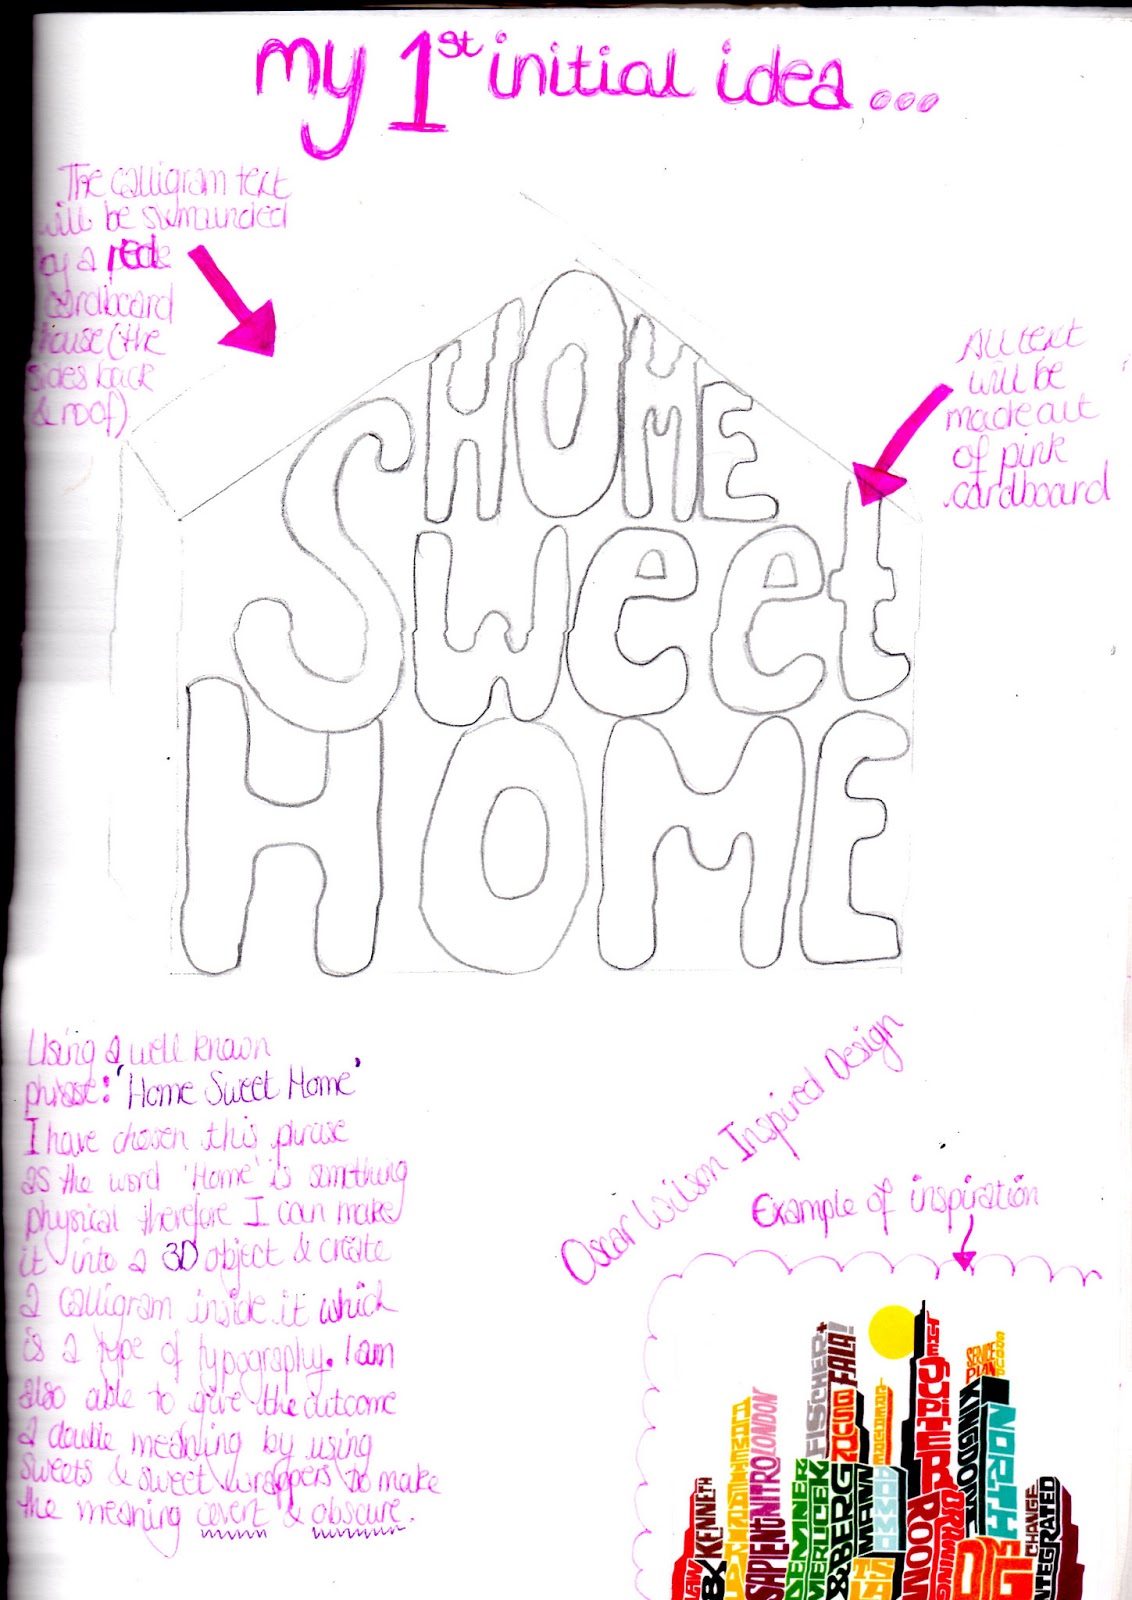 my 1st initial idea...
The calligram text
will be surrounded
by a
cardboard
house (the
sides back
& roof)
All text
will be
made out
of pink
cardboard
HOME
Sweet
HOME
Using a well known
phrase: 'Home Sweet Home'
I have chosen this phrase
as the word 'Home' is something
physical therefore I can make
it into a 3D object & create
a calligram inside it which
is a type of typography. I am
also able to give the outcome
a double meaning by using
sweets & sweet wrappers to make
the meaning covert & obscure.
Oscar Wilson Inspired Design
Example of inspiration
LAW
&
KENNETH
SAPIENTNITRO
LONDON
DEMNER
MERLICEK
&BERG
MANN
FISCHER+
FALA!
THE
SUPER
ROOM
SERVICE
PLAN
NORTH
CHANGE
INTEGRATED